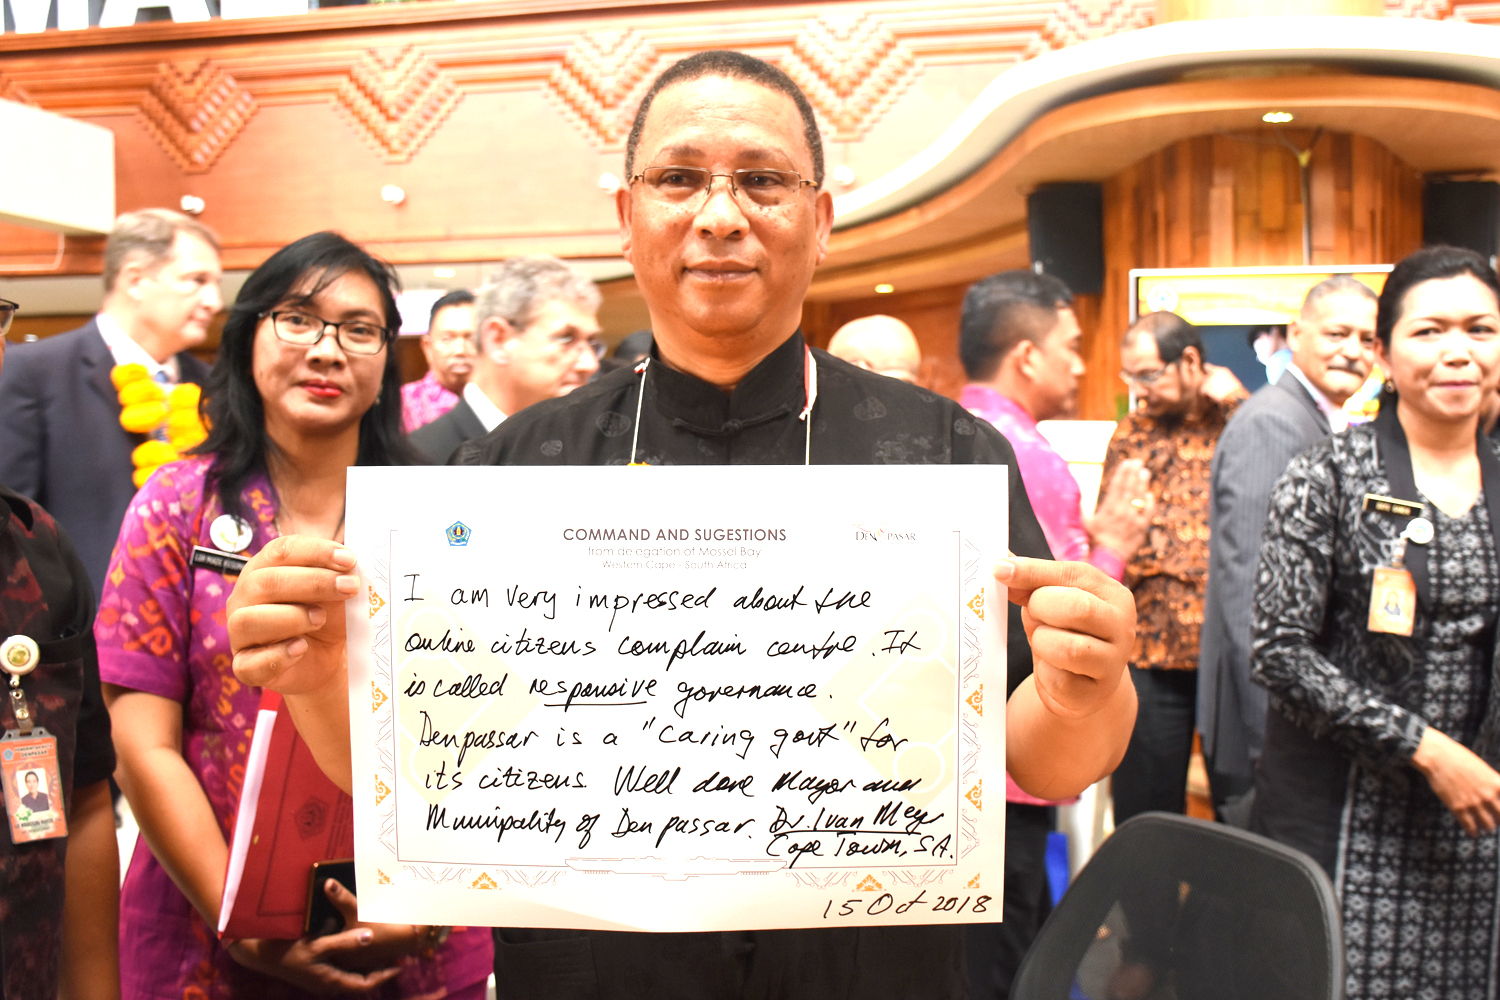 COMMAND AND SUGESTIONS
from delegation of Mossel Bay
Western Cape - South Africa
DENPASAR
I am very impressed about the
online citizens complain centre. It
is called responsive governance.
Denpassar is a "caring govt" for
its citizens. Well done Mayor and
Municipality of Denpassar. Dr. Ivan Meyer
Cape Town, SA.
15 Oct 2018
DENPASAR